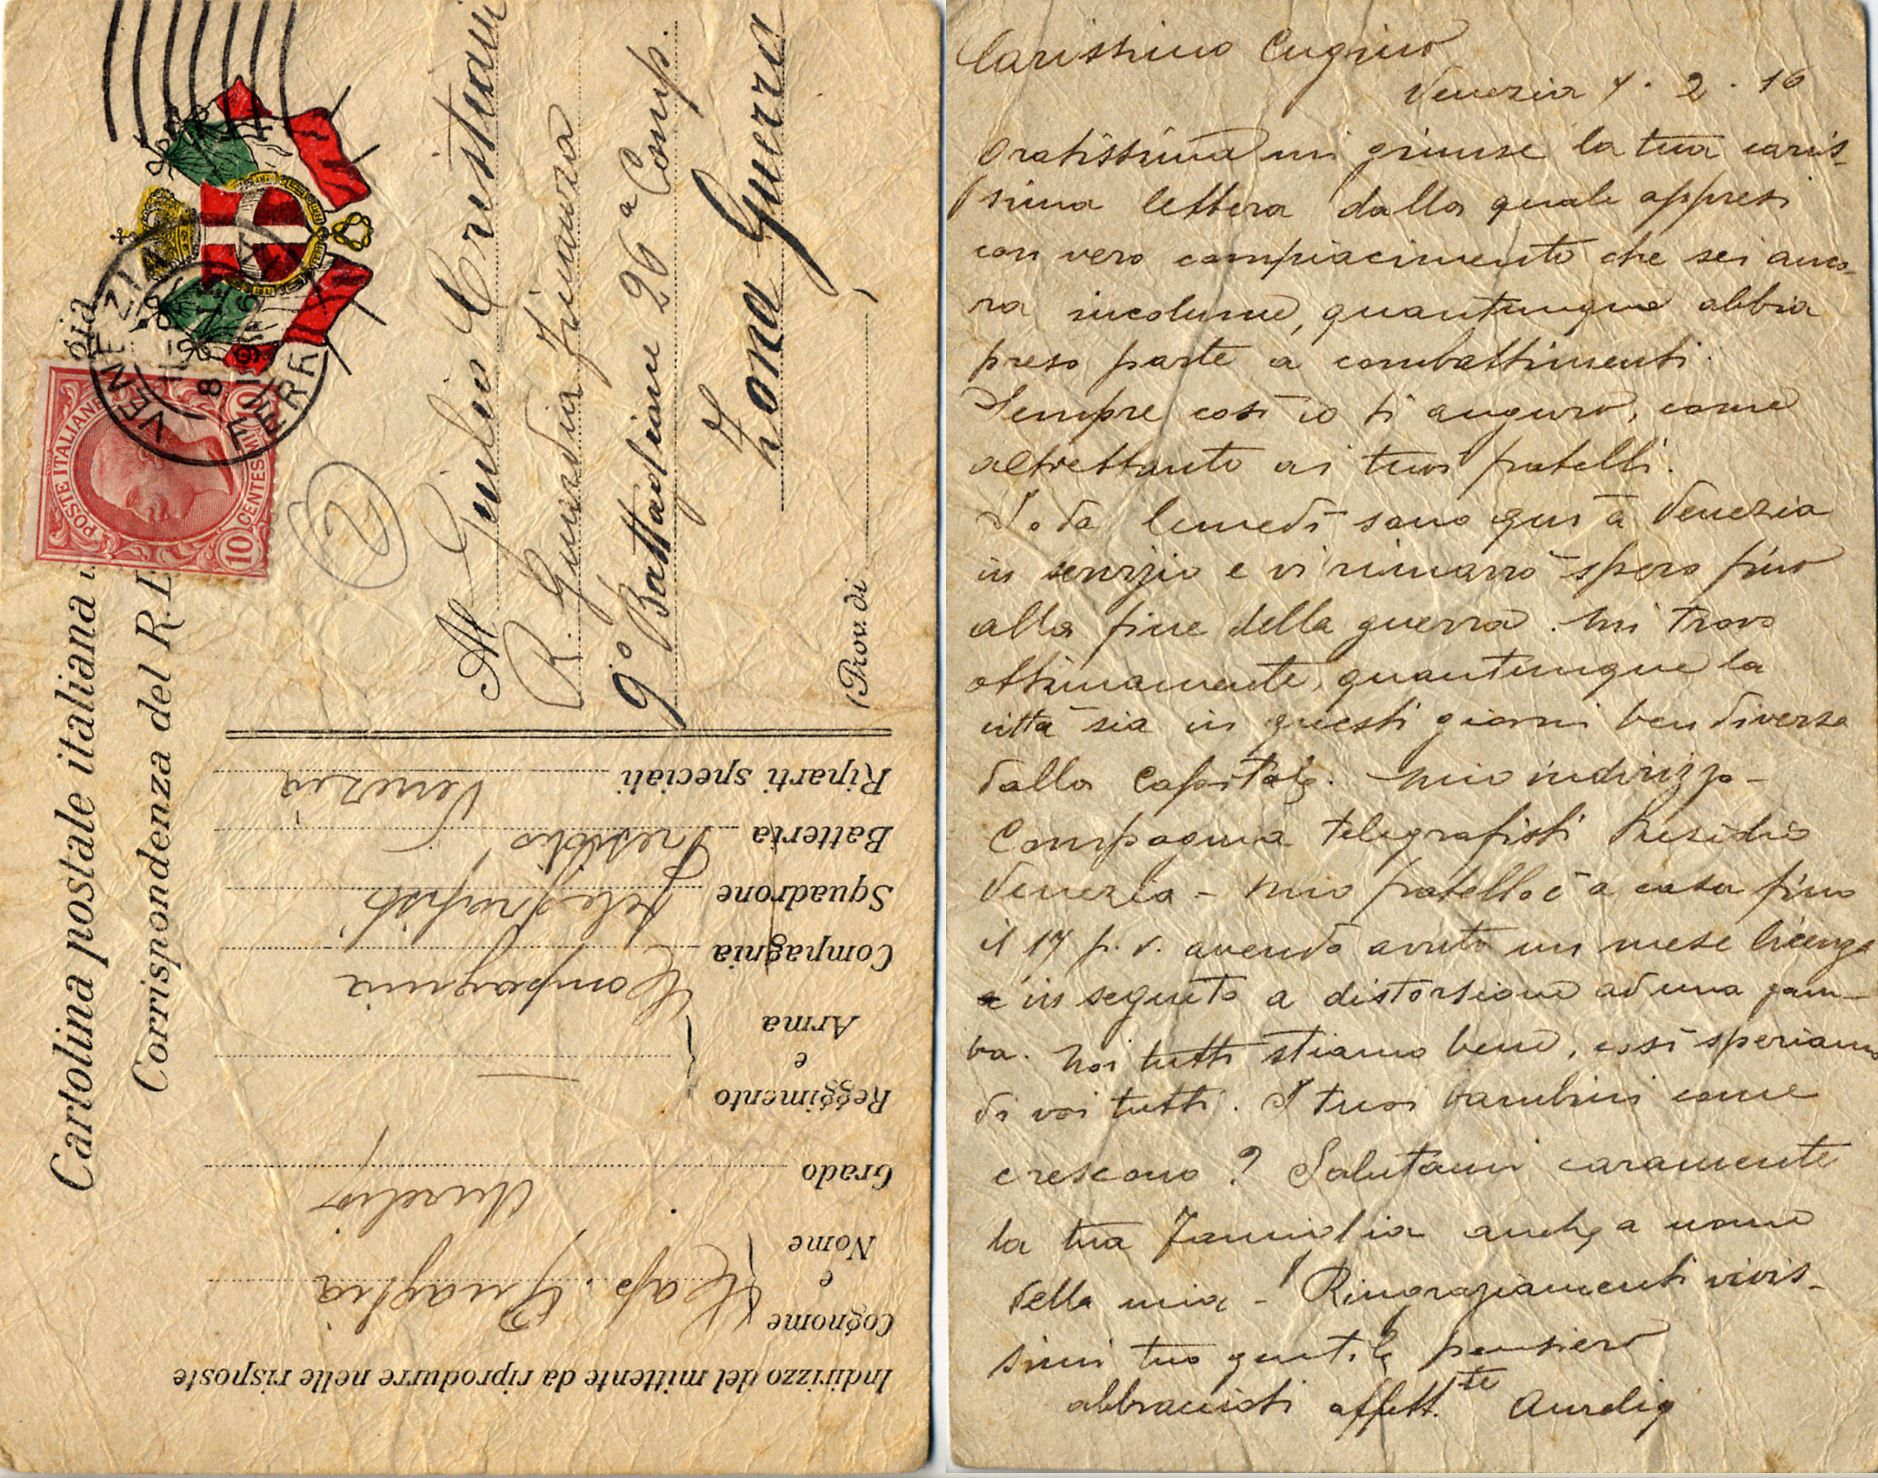 Cartolina postale italiana
Corrispondenza del R. E
POSTE ITALIANE
10 CENTESIMI 10
VENEZIA
FERROVIA
8
Al Giulio Cristiani
R. Guardia Finanza
9° Battaglione 26a Comp.
Zona Guerra
(Prov. di
Indirizzo del mittente da riprodurre nelle risposte
Cognome e Nome
Cap. Quaglia
Aurelio
Grado
Reggimento e Arma
Compagnia
Compagnia
Squadrone
Telegrafisti
Batteria
Presidio
Riparti speciali
Venezia
Carissimo Cugino
Venezia 7. 2. 16
Gratissima mi giunse la tua caris-
sima lettera dalla quale appresi
con vero compiacimento che sei anco-
ra incolume, quantunque abbia
preso parte a combattimenti.
Sempre così io ti auguro, come
altrettanto ai tuoi fratelli.
Io da lunedì sono qui a Venezia
in servizio e vi rimarrò spero fino
alla fine della guerra. Mi trovo
ottimamente, quantunque la
città sia in questi giorni ben diversa
dalla Capitale. Mio indirizzo -
Compagnia Telegrafisti Presidio
Venezia - Mio fratello è a casa fino
il 17 p. v. avendo avuto un mese licenza
in seguito a distorsione ad una gam-
ba. Noi tutti stiamo bene, così speriamo
di voi tutti. I tuoi bambini come
crescono? Salutami caramente
la tua Famiglia anche a nome
della mia - Ringraziamenti vivis-
simi tuo gentile pensiero
abbraccioti affett.te Aurelio